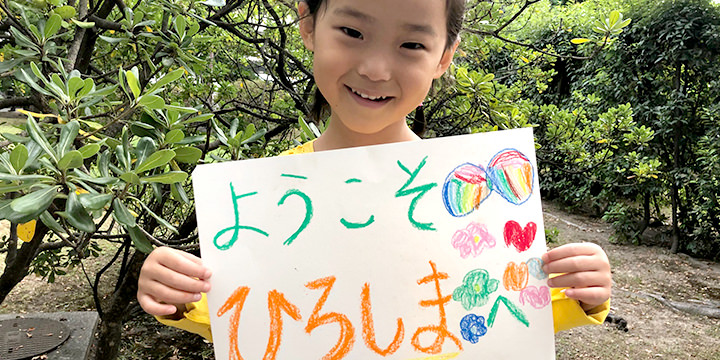 ようこそ
ひろしまへ